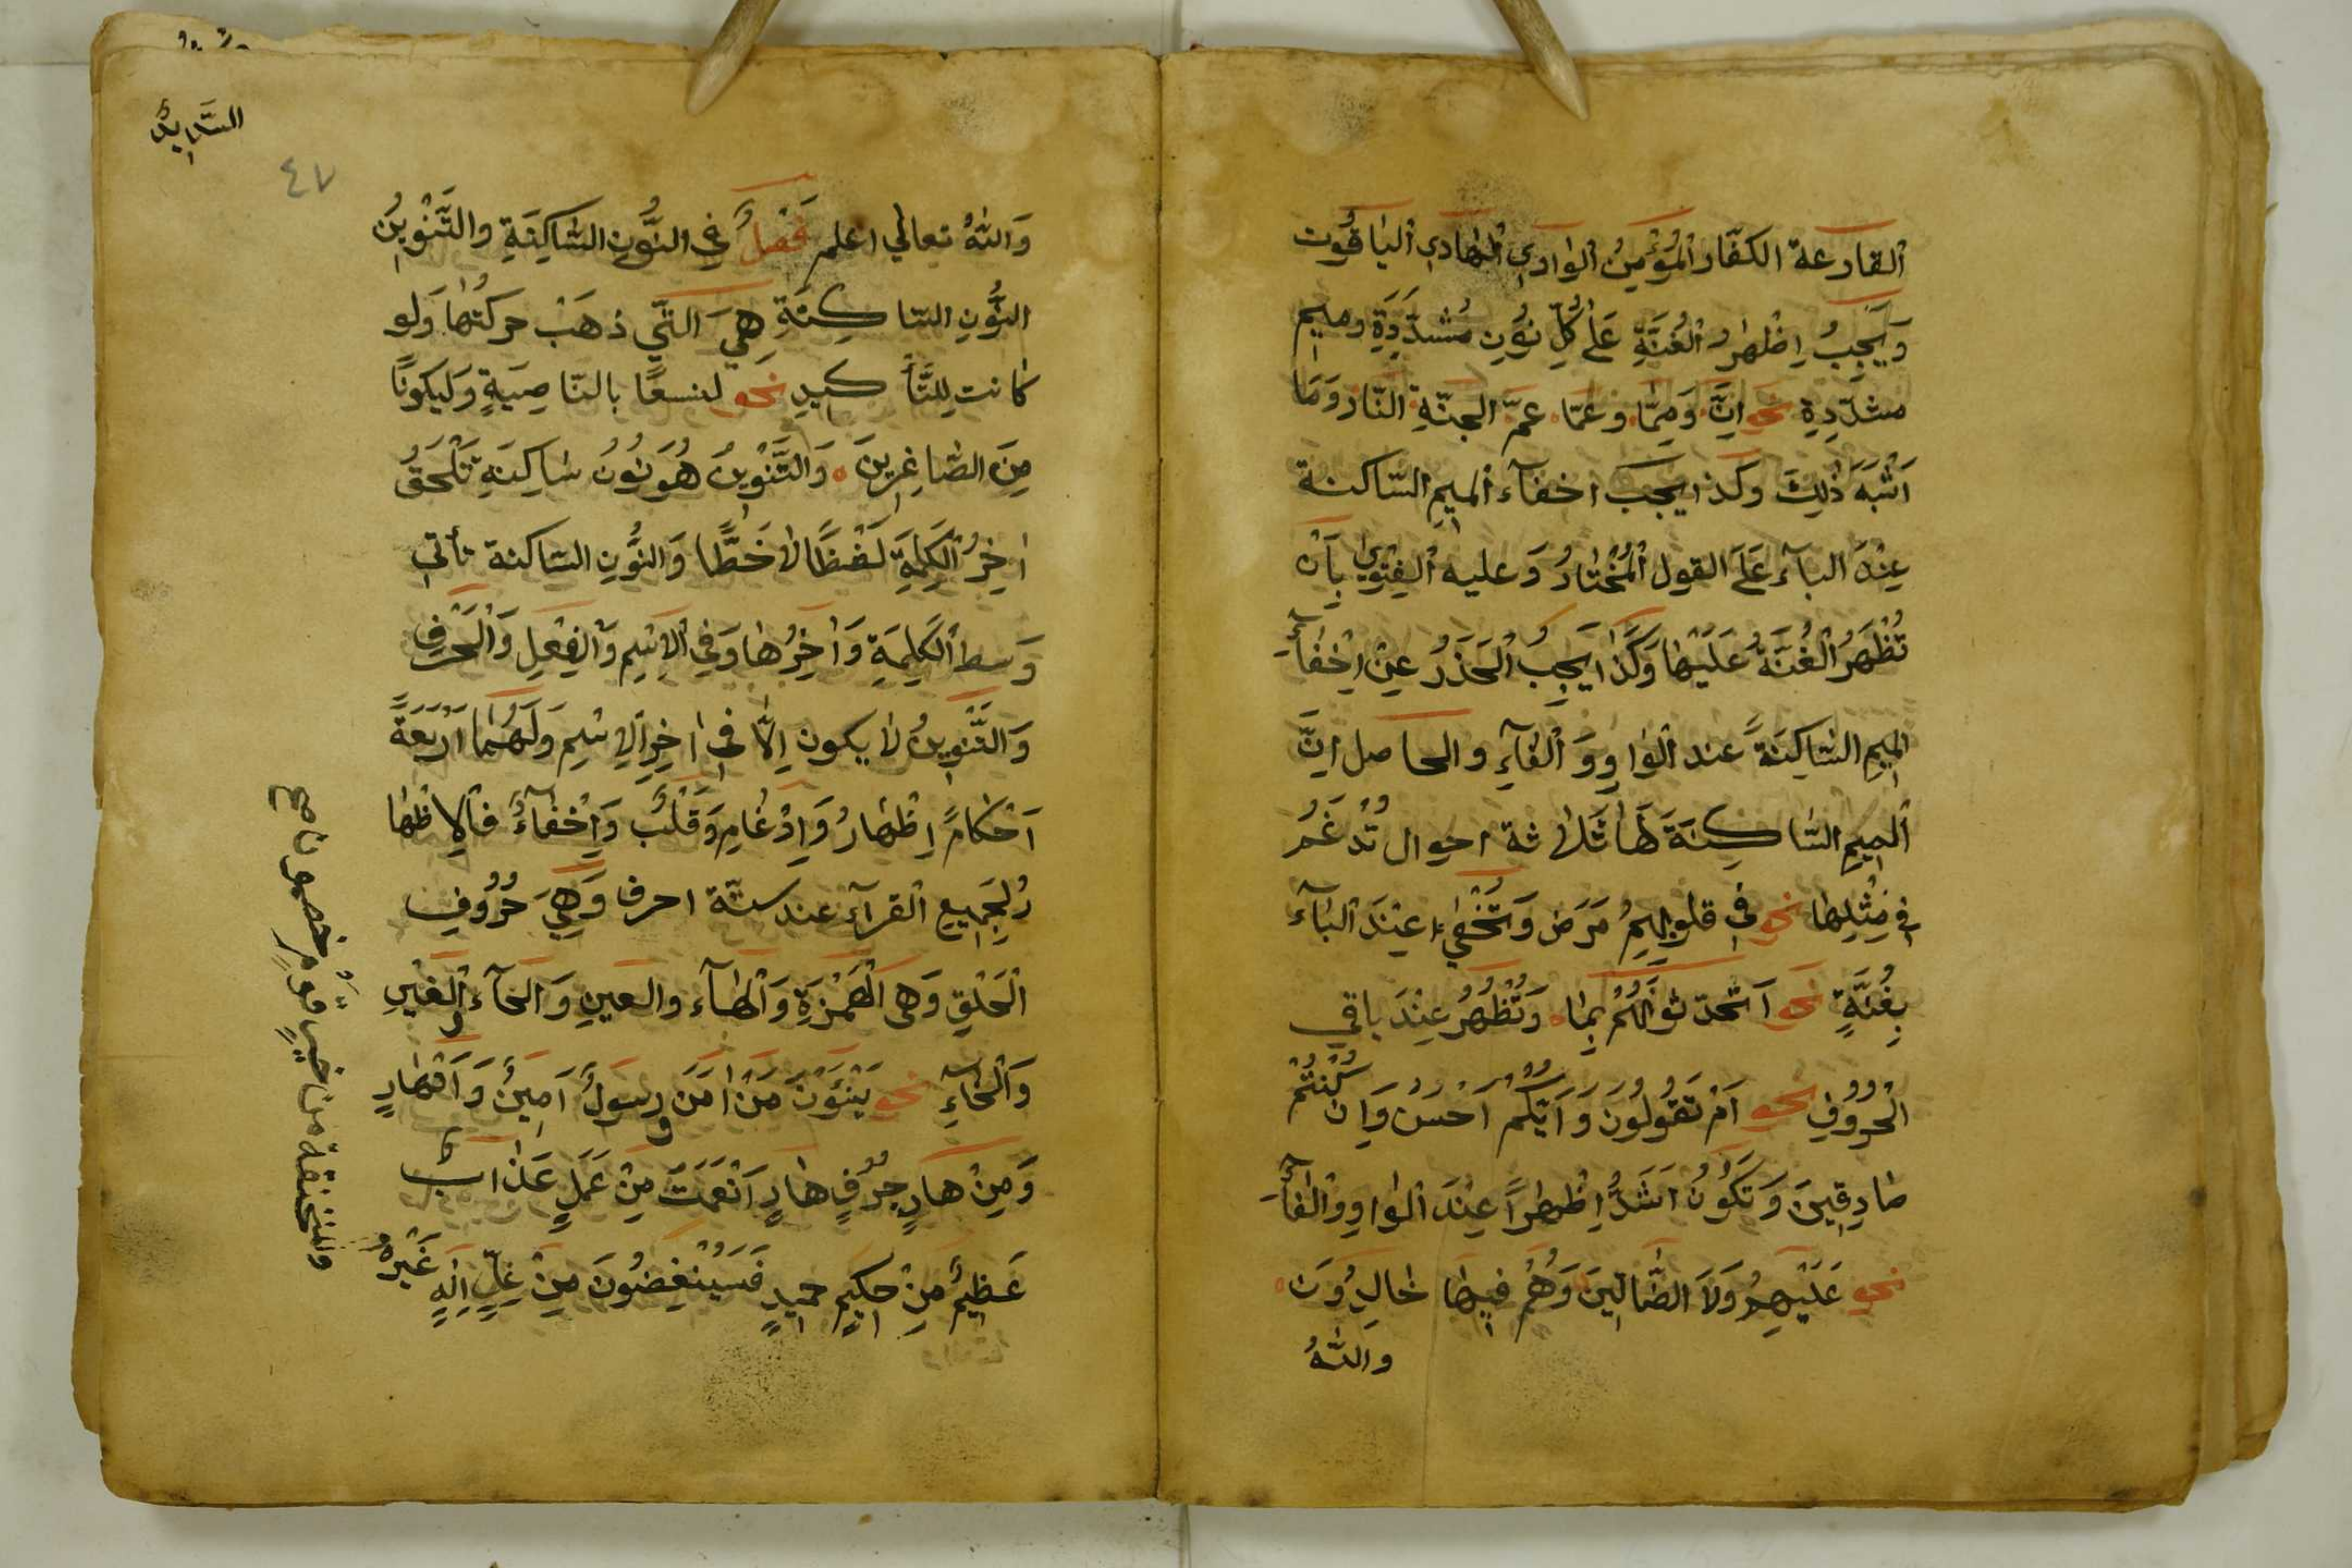 القارعة الكفّار المُؤْمِنُ الوادي الهادي الياقُوت
وَيَجِبُ اِظْهٰرُ الْغُنَّةِ عَلٰى كُلِّ نُوُنٍ مُشَدَّدَةٍ وميمٍ
مشدّدةٍ نحو انَّ وَمِمّا وعمّا عمّ الجنّةِ النّار وَمَا
اَشْبَهَ ذٰلِكَ وكذا يجب اخفآء الميمِ السّاكنة
عِنْدَ البآء عَلَى القول الْمُخْتٰارُ وَعليه الفتوىٰ بِاَنْ
تُظْهَرَ الْغُنَّةُ عَلَيْهٰا وَكَذٰا يَجِبُ الْحَذَرُ عِنْ اِخْفٰآءِ
الميمِ السّٰاكِنَةً عند الْوٰاوِ وَالْفٰآءِ والحاصل انَّ
الميمِ السّاكِنَةَ لَهٰا ثَلٰاثة احوال تُدْغَمُ
في مِثْلِهٰا نحو في قلوبِهِمُ مَرَض وَتُخْفىٰ عِنْدَ الْبٰآء
بِغُنَّةٍ نحو اَتُحَدّثونَهُمْ بِمٰا وَتُظْهَرُ عِنْدَ باقي
الْحُرُوُفِ نحو اَمْ تَقُولُونَ وَاَيُّكُمْ اَحْسَنُ وَاِن كُنْتُمْ
صٰادِقِينَ وَتَكُوُنُ اَشَدُّ اِظْهٰراً عِنْدَ الْوٰاوِ وَالْفٰآءِ
نحو عَلَيْهِمُ وَلَا الضّٰالّينَ وَهُمُ فيهٰا خٰالِدُونَ
واللّٰهُ
السّدايدُ
٤٧
وَاللّٰهُ تعالى اعلم فَصْلٌ في النُّونِ السّٰاكِنَةِ والتَّنْوِينِ
النُّونِ السّاكِنَةِ هِيَ الَّتي ذهَبَ حركتُهٰا وَلو
كانت لِلتَّأكيدِ نحو لنسفعًا بالنّاصِيَةٍ وَليكونًا
مِنَ الصّاغِرينَ وَالتَّنْوِينُ هُوَ نُوُنُ سٰاكِنَةٍ تَلْحَقُ
اٰخِرُ الْكَلِمَةِ لَفْظًا لٰا خَطًّا وَالنُّونِ السّاكنة تأتي
وَسط الْكَلِمَةِ وَآخِرُهٰا وَفي الْاِسْمِ وَالْفِعْلِ وَالْحَرْفِ
وَالتَّنْوِينُ لٰا يكون اِلّا في اٰخِرِ الْاِسْمِ وَلَهُمٰا اَرْبَعَةً
اَحْكٰامً اِظْهٰارُ وَاِدْغٰامِ وَقَلْبٌ وَاِخْفٰآءٌ فالاِظْهٰا
رُ لِجَميعِ الْقرآء عند ستّة احرف وَهِيَ حُرُوُفِ
الْحَلْقِ وَهى الْهَمْزَةِ وَالْهٰآء والعينِ وَالحآء وَالْغَيْنِ
وَالْخٰآءِ نحو يَنْئَوْنَ مَنْ اٰمَنَ رسَولٌ اَمِينٌ وَاَنْهٰارٍ
وَمِنْ هادٍ جُرُفٍ هٰارٍ اَنْعَمَتَ مِنْ عَمَلٍ عَذٰابٌ
عَظِيمٌ مِنْ حكيمٍ حميدٍ فَسَيُنْغِضُونَ مِنْ غِلٍّ اِلٰهٍ غَيْرُهُ
والمنخنقة من خيرٍ قومٍ خصمون نا صح